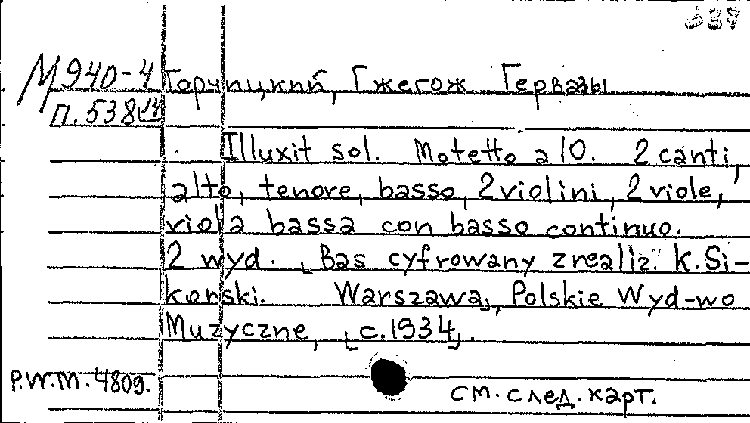 М940-4 Горчицкий, Гжегож Гервазы
П.538
Illuxit sol. Motetto a 10. 2 canti,
alto, tenore, basso, 2 violini, 2 viole,
viola bassa con basso continuo.
2 wyd. Bas cyfrowany zrealiz. K. Si-
korski. Warszawa, Polskie Wyd-wo
Muzyczne, [c.1934].
P.W.M. 4809.
см. след. карт.